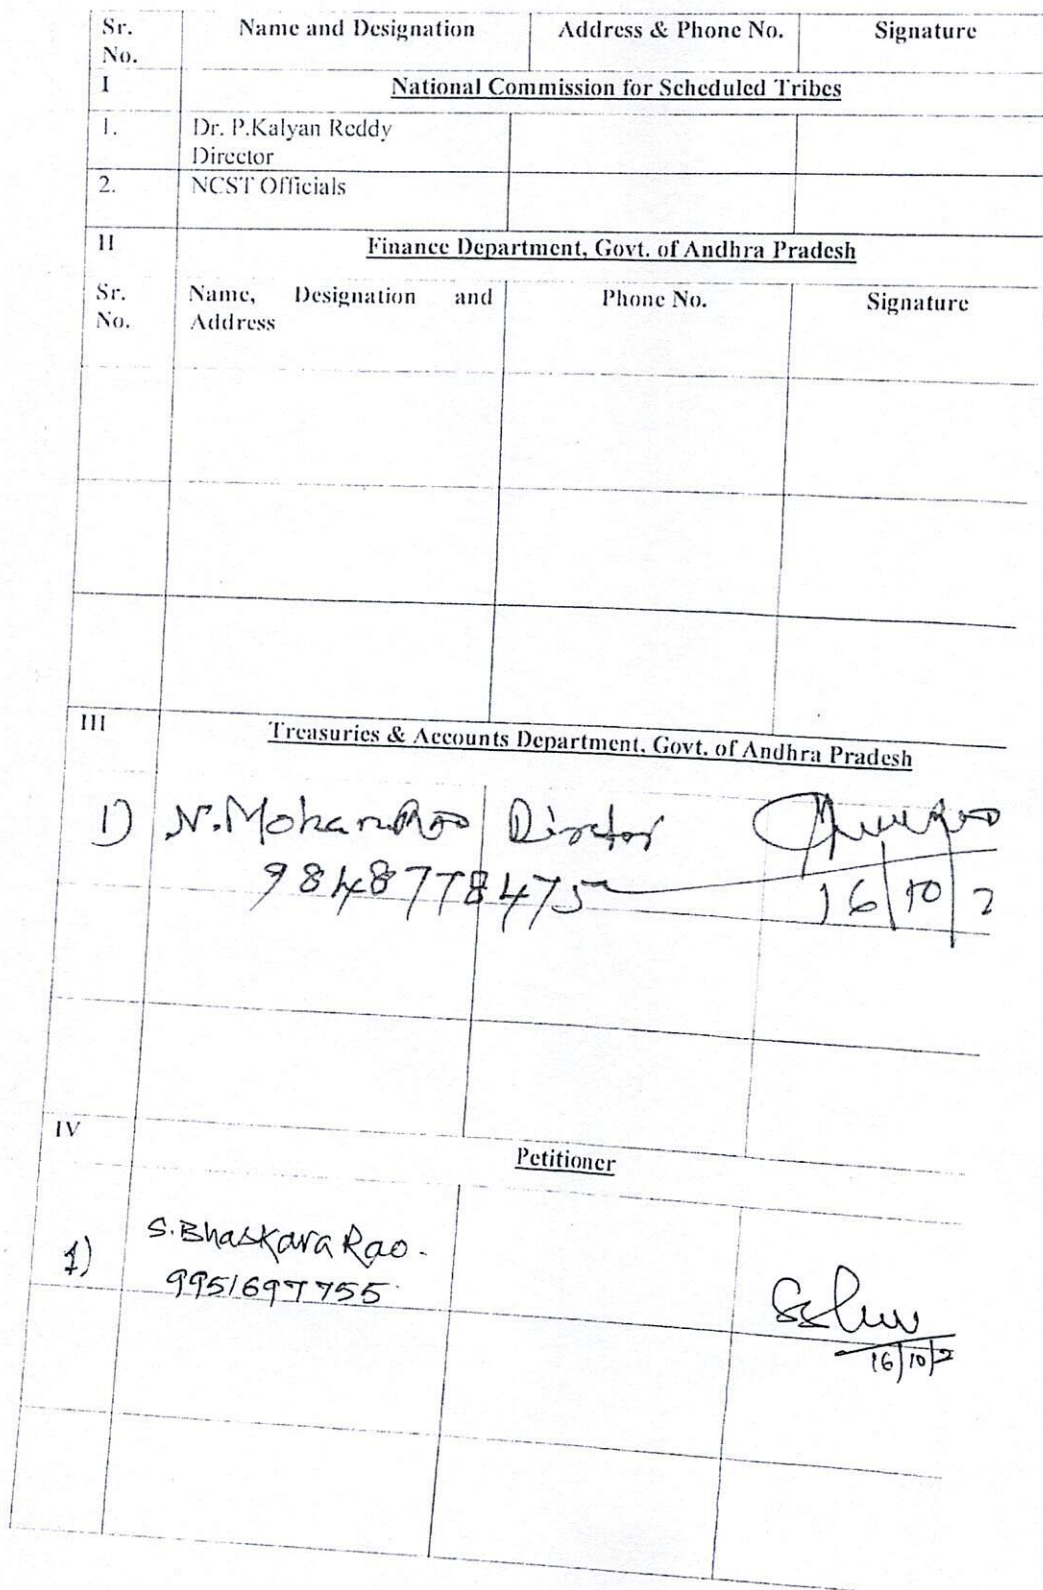 Sr. No. Name and Designation Address & Phone No. Signature
I National Commission for Scheduled Tribes
1. Dr. P.Kalyan Reddy
Director
2. NCST Officials
II Finance Department, Govt. of Andhra Pradesh
Sr. No. Name, Designation and Address Phone No. Signature
III Treasuries & Accounts Department, Govt. of Andhra Pradesh
1) N. Mohan Rao Director
9848778475 16/10/2
IV Petitioner
1) S. Bhaskara Rao.
9951697755
16/10/2